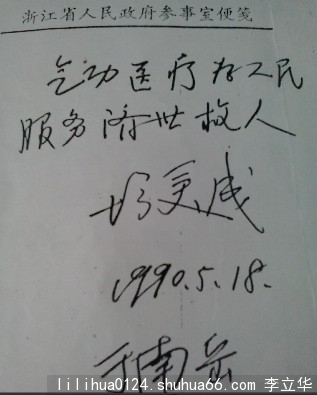 浙江省人民政府参事室便笺
气功医疗为人民
服务济世救人
1990.5.18.
于南岳
lilihua0124.shuhua66.com 李立华